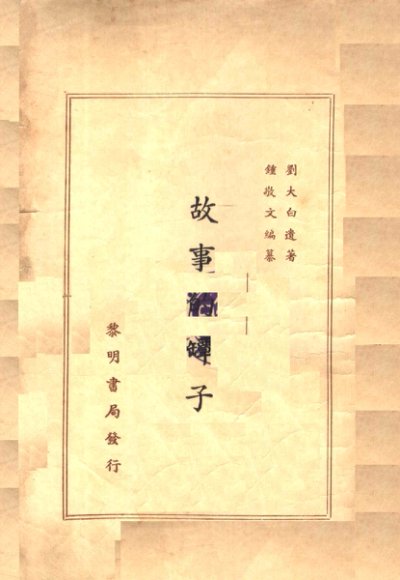 劉大白遺著
鍾敬文編纂
故事的罈子
黎明書局發行